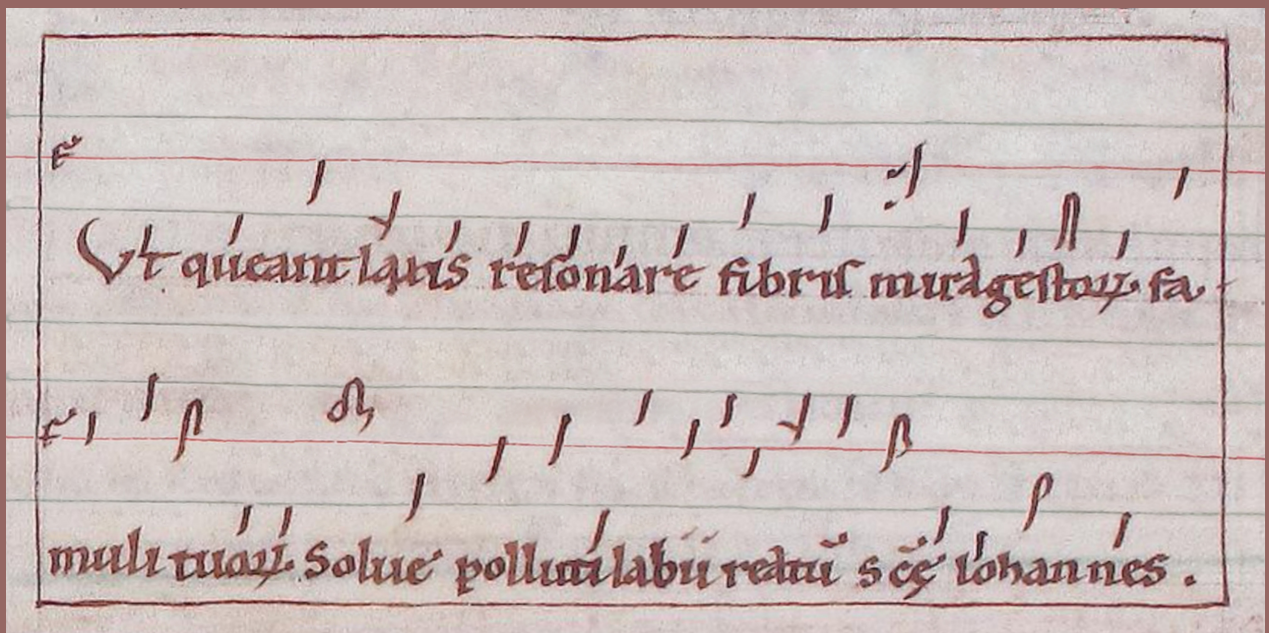 F
Ut queant laxis resonare fibris mira gestoꝝ fa-
F
muli tuoꝝ Solue polluti labii reatū sc̄ę iohannes.